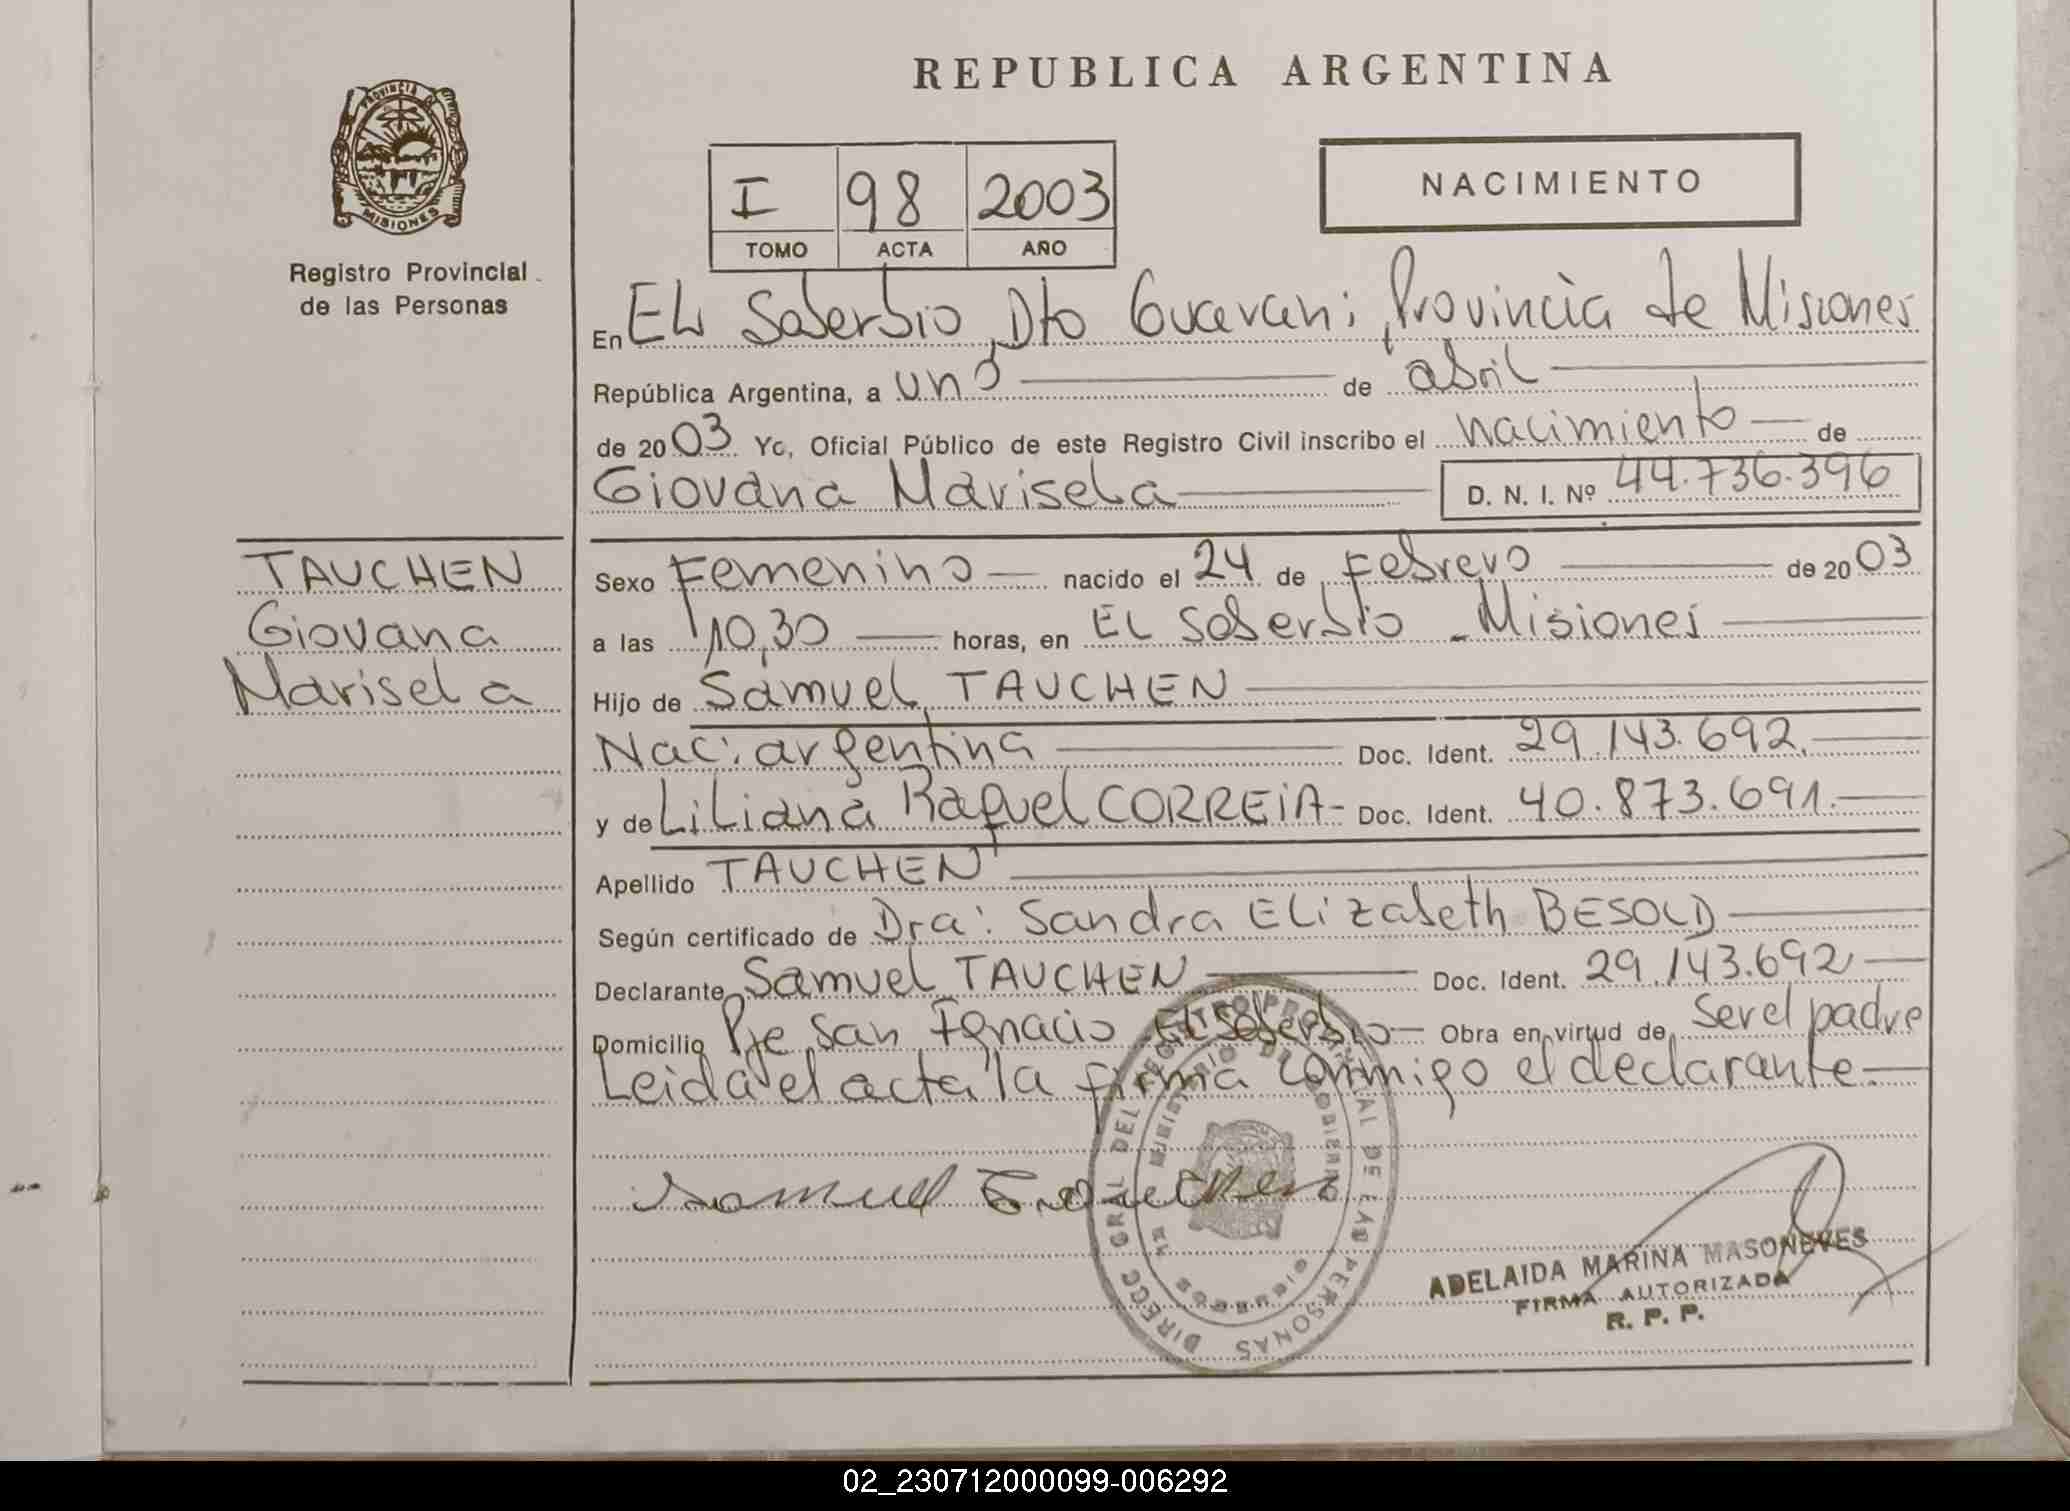 REPUBLICA ARGENTINA
PROVINCIA DE
MISIONES
Registro Provincial
de las Personas
I 98 2003
TOMO ACTA AÑO
NACIMIENTO
En EL Soberbio, Dto Guarani, Provincia de Misiones
República Argentina, a uno de abril
de 2003 Yo, Oficial Público de este Registro Civil inscribo el nacimiento de
Giovana Marisela D. N. I. Nº 44.736.396
TAUCHEN
Giovana
Marisela
Sexo Femenino nacido el 24 de Febrero de 2003
a las 10,30 horas, en EL Soberbio - Misiones
Hijo de Samuel TAUCHEN
Nac: argentina Doc. Ident. 29.143.692.
y de Liliana Raquel CORREIA- Doc. Ident. 40.873.691.
Apellido TAUCHEN
Según certificado de Dra: Sandra ELizabeth BESOLD
Declarante Samuel TAUCHEN Doc. Ident. 29.143.692
Domicilio Pje San Ignacio El Soberbio Obra en virtud de ser el padre
Leida el acta la firma conmigo el declarante.
DIRECC GRAL DEL REGISTRO PROVINCIAL DE LAS PERSONAS
MINISTERIO DE GOBIERNO
Samuel Tauchen
ADELAIDA MARINA MASONEVES
FIRMA AUTORIZADA
R. P. P.
02_230712000099-006292